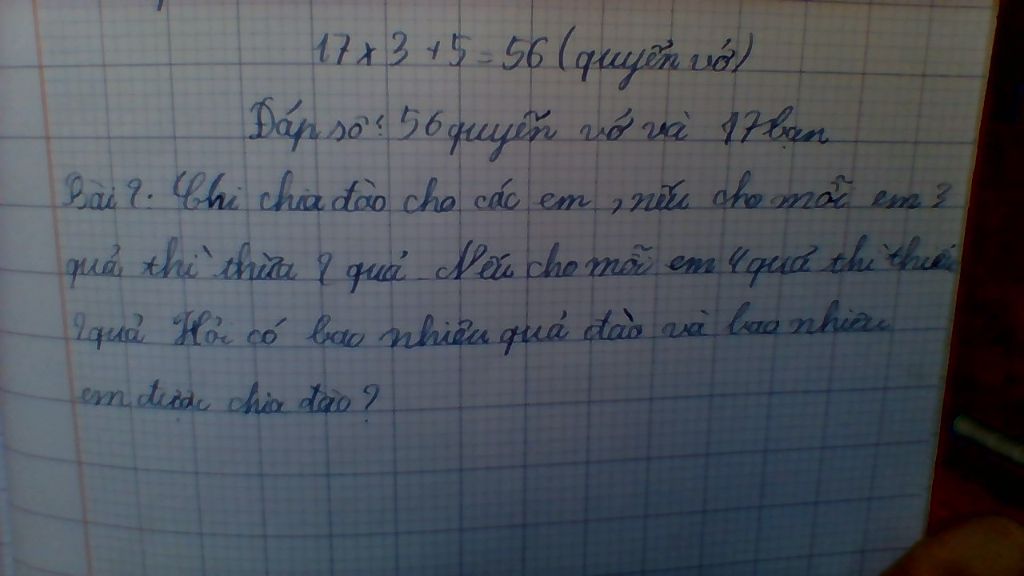 17 x 3 + 5 = 56 (quyển vở)
Đáp số: 56 quyển vở và 17 bạn
Bài 2. Chị chia đào cho các em, nếu cho mỗi em 3
quả thì thừa 2 quả Nếu cho mỗi em 4 quả thì thiếu
2 quả Hỏi có bao nhiêu quả đào và bao nhiêu
em được chia đào?